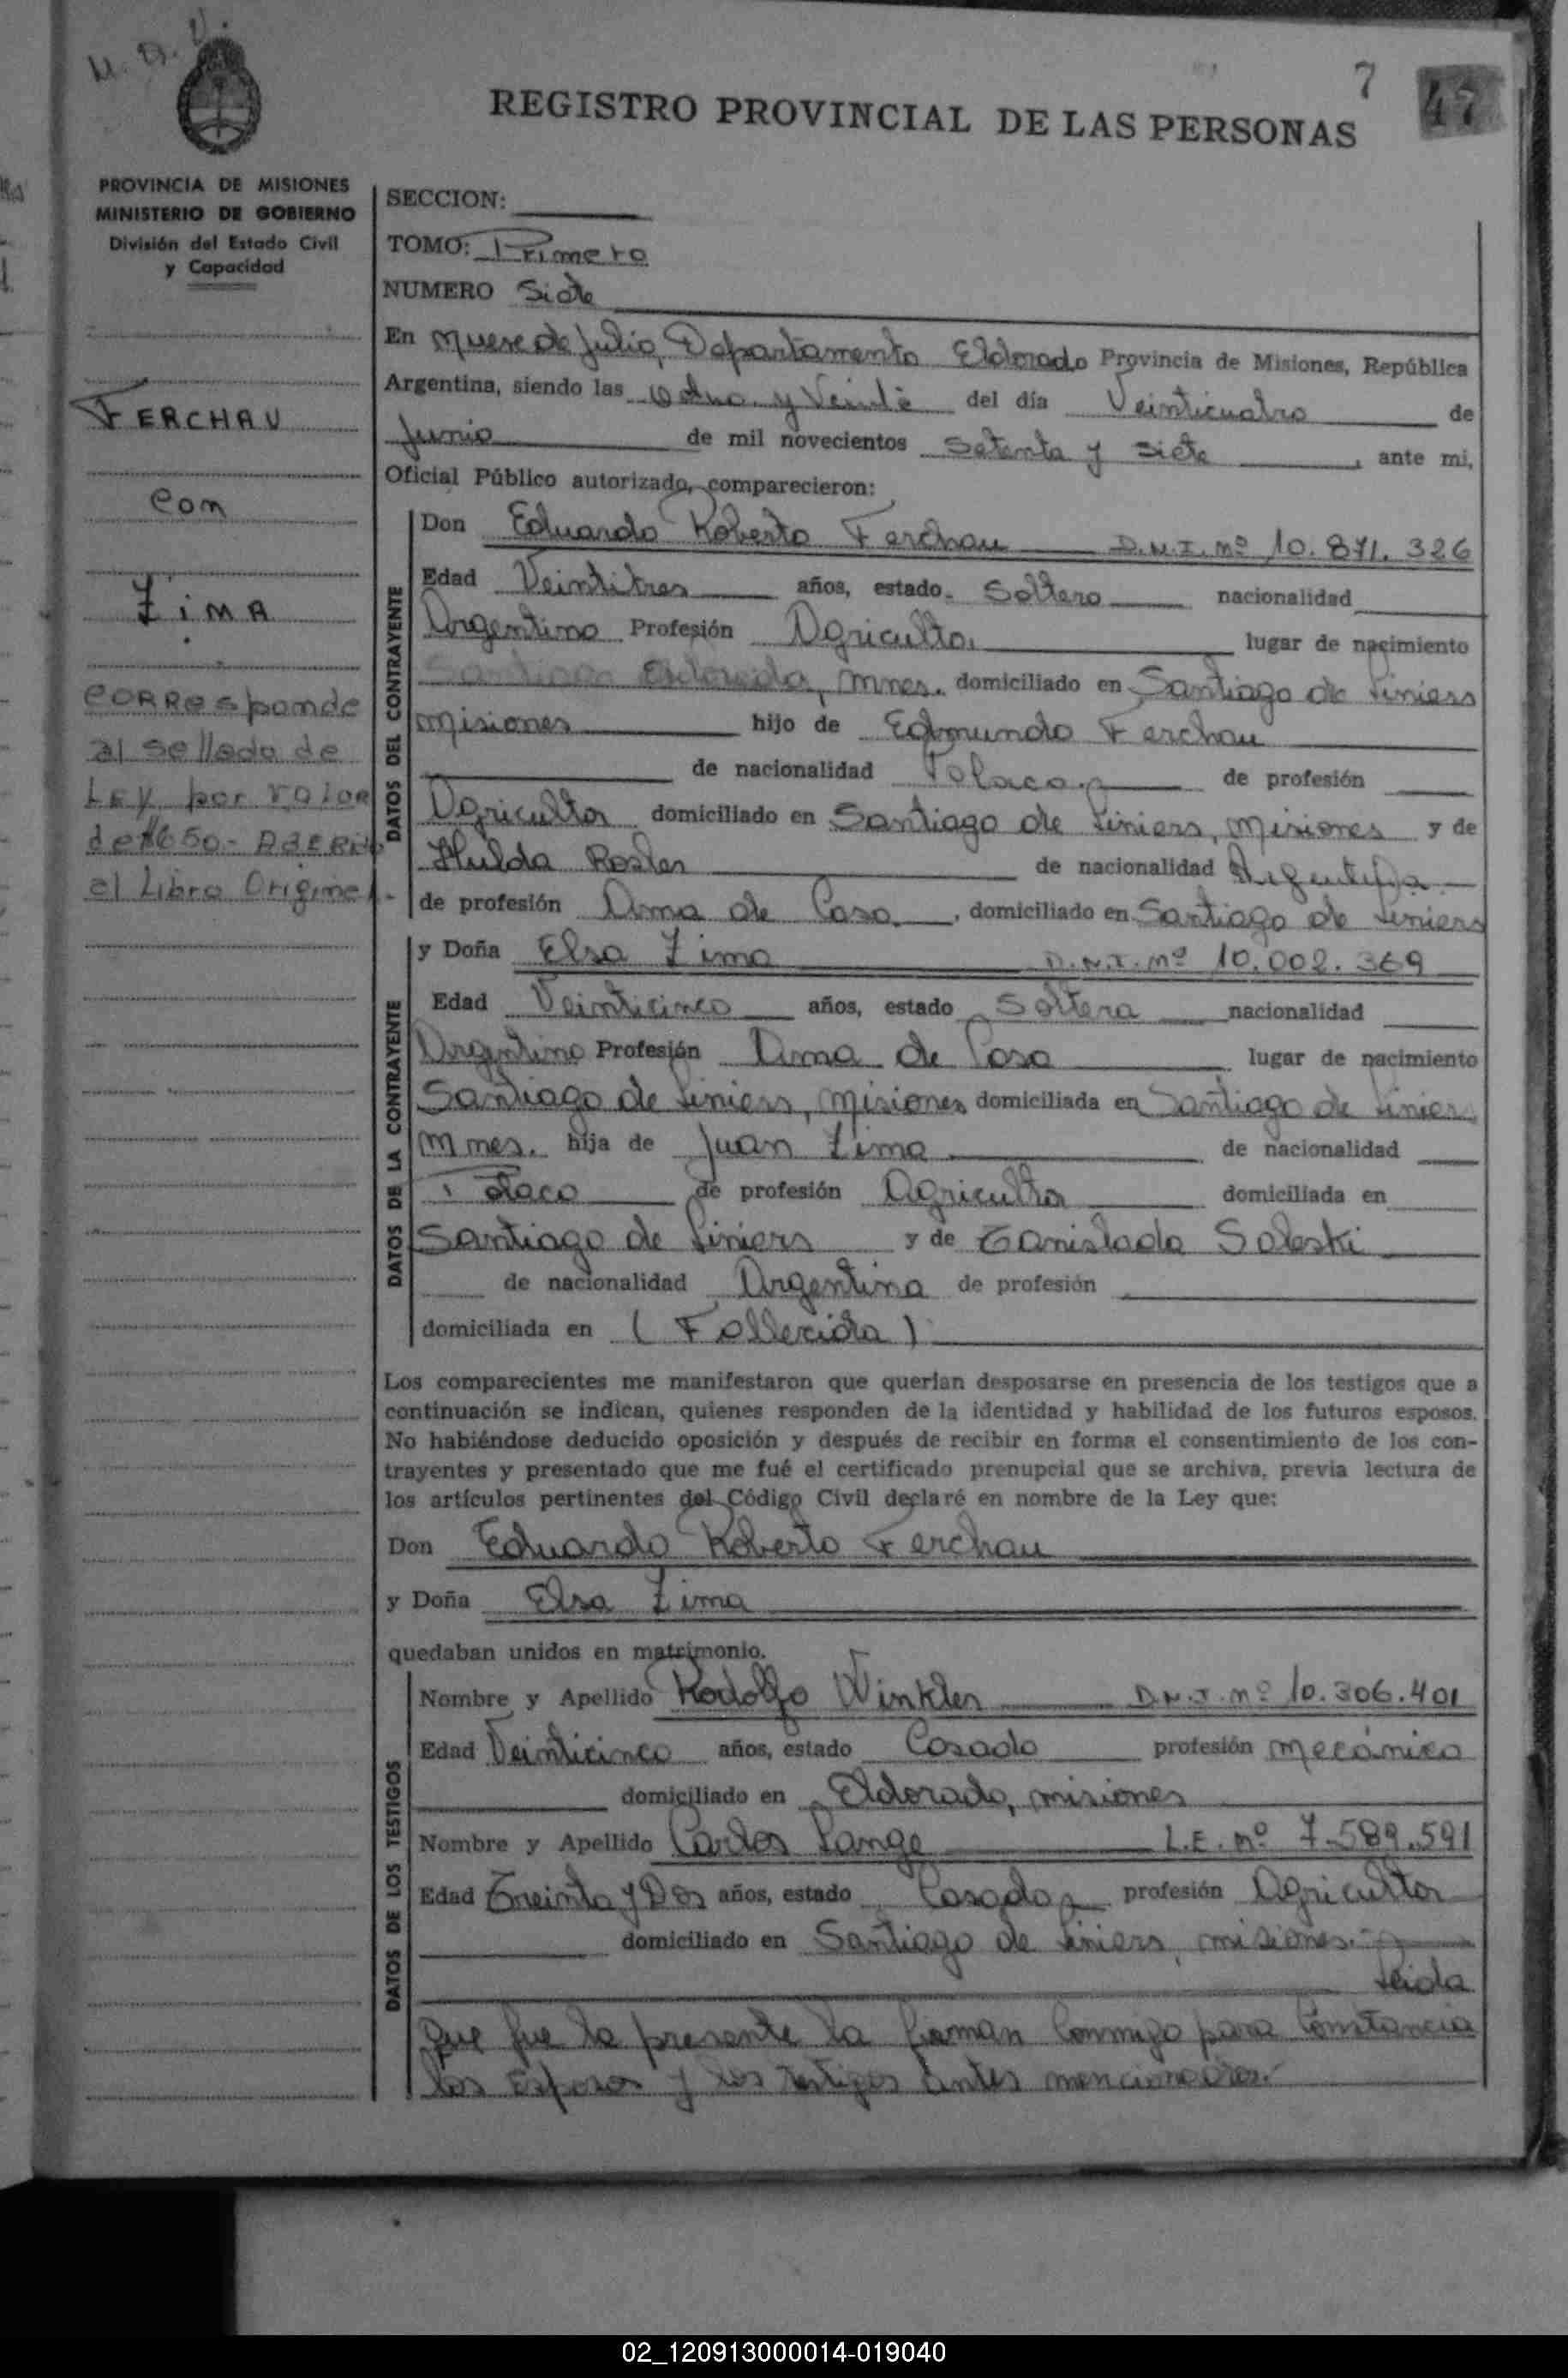 7
47
REGISTRO PROVINCIAL DE LAS PERSONAS
PROVINCIA DE MISIONES
MINISTERIO DE GOBIERNO
División del Estado Civil
y Capacidad
FERCHAU
con
ZiMA
CORResponde
al sellado de
LEY por VALOR
de $650.- ADERido
el Libro Origine
SECCION:
TOMO: Primero
NUMERO Siete
En Nueve de Julio, Departamento Eldorado Provincia de Misiones, República
Argentina, siendo las y Veinte del día Veinticuatro de
Junio de mil novecientos Setenta y Siete, ante mi,
Oficial Público autorizado, comparecieron:
DATOS DEL CONTRAYENTE
Don Eduardo Roberto Ferchau D.N.I. Nº 10.871.326
Edad Veintitres años, estado Soltero nacionalidad
Argentino Profesión Agricultor lugar de nacimiento
Eldorado, Mnes. domiciliado en Santiago de Liniers
Misiones hijo de Edmundo Ferchau
de nacionalidad Polaco de profesión
Agricultor domiciliado en Santiago de Liniers, Misiones y de
Hulda Rosler de nacionalidad Argentina
de profesión Ama de Casa, domiciliado en Santiago de Liniers
DATOS DE LA CONTRAYENTE
y Doña Elsa Zima D.N.I. Nº 10.002.369
Edad Veinticinco años, estado Soltera nacionalidad
Argentina Profesión Ama de Casa lugar de nacimiento
Santiago de Liniers, Misiones domiciliada en Santiago de Liniers
Mnes. hija de Juan Zima de nacionalidad
Polaco de profesión Agricultor domiciliada en
Santiago de Liniers y de Estanislada Soleski
de nacionalidad Argentina de profesión
domiciliada en (Fallecida)
Los comparecientes me manifestaron que querían desposarse en presencia de los testigos que a
continuación se indican, quienes responden de la identidad y habilidad de los futuros esposos.
No habiéndose deducido oposición y después de recibir en forma el consentimiento de los con-
trayentes y presentado que me fué el certificado prenupcial que se archiva, previa lectura de
los artículos pertinentes del Código Civil declaré en nombre de la Ley que:
Don Eduardo Roberto Ferchau
y Doña Elsa Zima
quedaban unidos en matrimonio.
DATOS DE LOS TESTIGOS
Nombre y Apellido Rodolfo Winkler D.N.I. Nº 10.306.401
Edad Veinticinco años, estado Casado profesión Mecánico
domiciliado en Eldorado, Misiones
Nombre y Apellido Carlos Lange L.E. Nº 7.589.591
Edad Treinta y Dos años, estado Casado profesión Agricultor
domiciliado en Santiago de Liniers, Misiones.-
Leida
que fue la presente la firman Conmigo para Constancia
los Esposos y los testigos antes mencionados.-
02_120913000014-019040